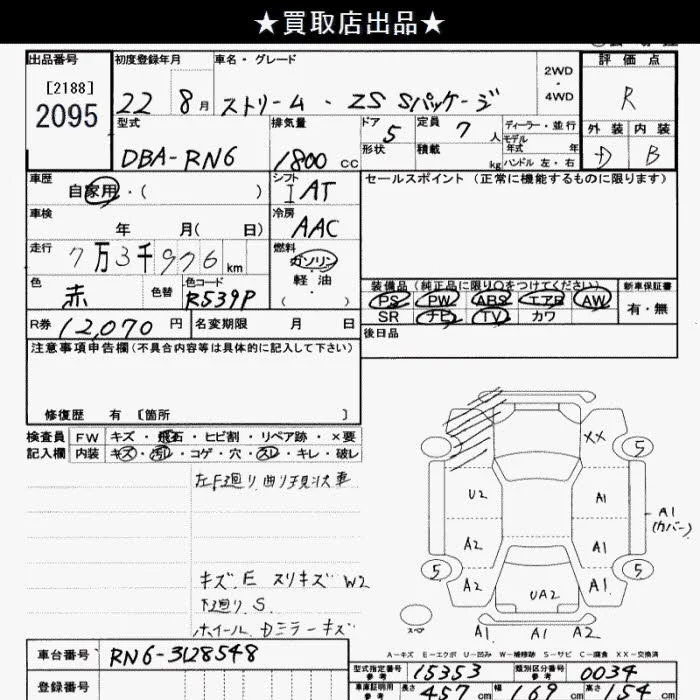 ★買取店出品★
出品番号 初度登録年月 車名・グレード 2WD ・ 4WD 評価点
[2188]
2095 22 8月 ストリーム・ZS Sパッケージ R
型式 排気量 ドア 5 定員 7人 ディーラー・並行 外装 内装
DBA-RN6 1800cc 形状 積載 kg モデル年式 年 ハンドル 左・右 D B
車歴 自家用・( ) シフト I AT セールスポイント(正常に機能するものに限ります)
車検 年 月( 日) 冷房 AAC
走行 7万3千976km 燃料 ガソリン 軽油 ( )
色 赤 色替 色コード R539P 装備品(純正品に限り○をつけてください) 新車保証書
PS PW ABS エアB AW 有・無
SR ナビ TV カワ
R券 12,070円 名変期限 月 日 後日品
注意事項申告欄(不具合内容等は具体的に記入して下さい)
修復歴 有 [箇所 ]
検査員 FW キズ・飛石・ヒビ割・リペア跡・×要
記入欄 内装 キズ・汚レ・コゲ・穴・スレ・キレ・破レ
左F廻り曲り現状車
XX 5
U2 A1 A1
(カバー)
A2 A1
5 A2 UA2 A1 5
キズ、E スリキズ W2
下廻りS
ホイール、Dミラーキズ
スペア A1 A1 A2
A-キズ E-エクボ U-凹み W-補修跡 S-サビ C-腐食 XX-交換済
車台番号 RN6-3128548 型式指定番号 参考 15353 類別区分番号 参考 0034
登録番号 車庫証明用 参考 長さ 457 cm 幅 169 cm 高さ 154 cm